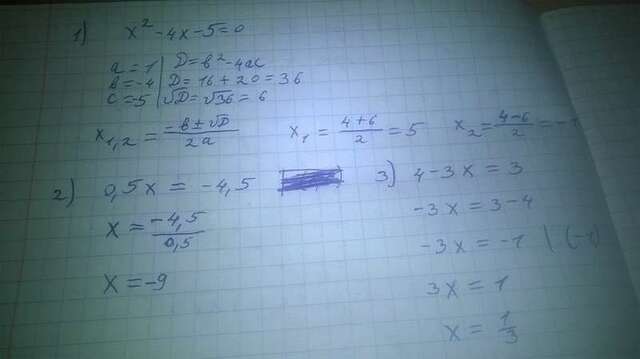 1) x² - 4x - 5 = 0
a = 1 | D = b² - 4ac
b = -4 | D = 16 + 20 = 36
c = -5 | √D = √36 = 6
x₁,₂ = (-b ± √D)/2a   x₁ = (4+6)/2 = 5   x₂ = (4-6)/2 = -1
2) 0,5x = -4,5
x = -4,5/0,5
x = -9
3) 4 - 3x = 3
-3x = 3 - 4
-3x = -1 | (-1)
3x = 1
x = 1/3